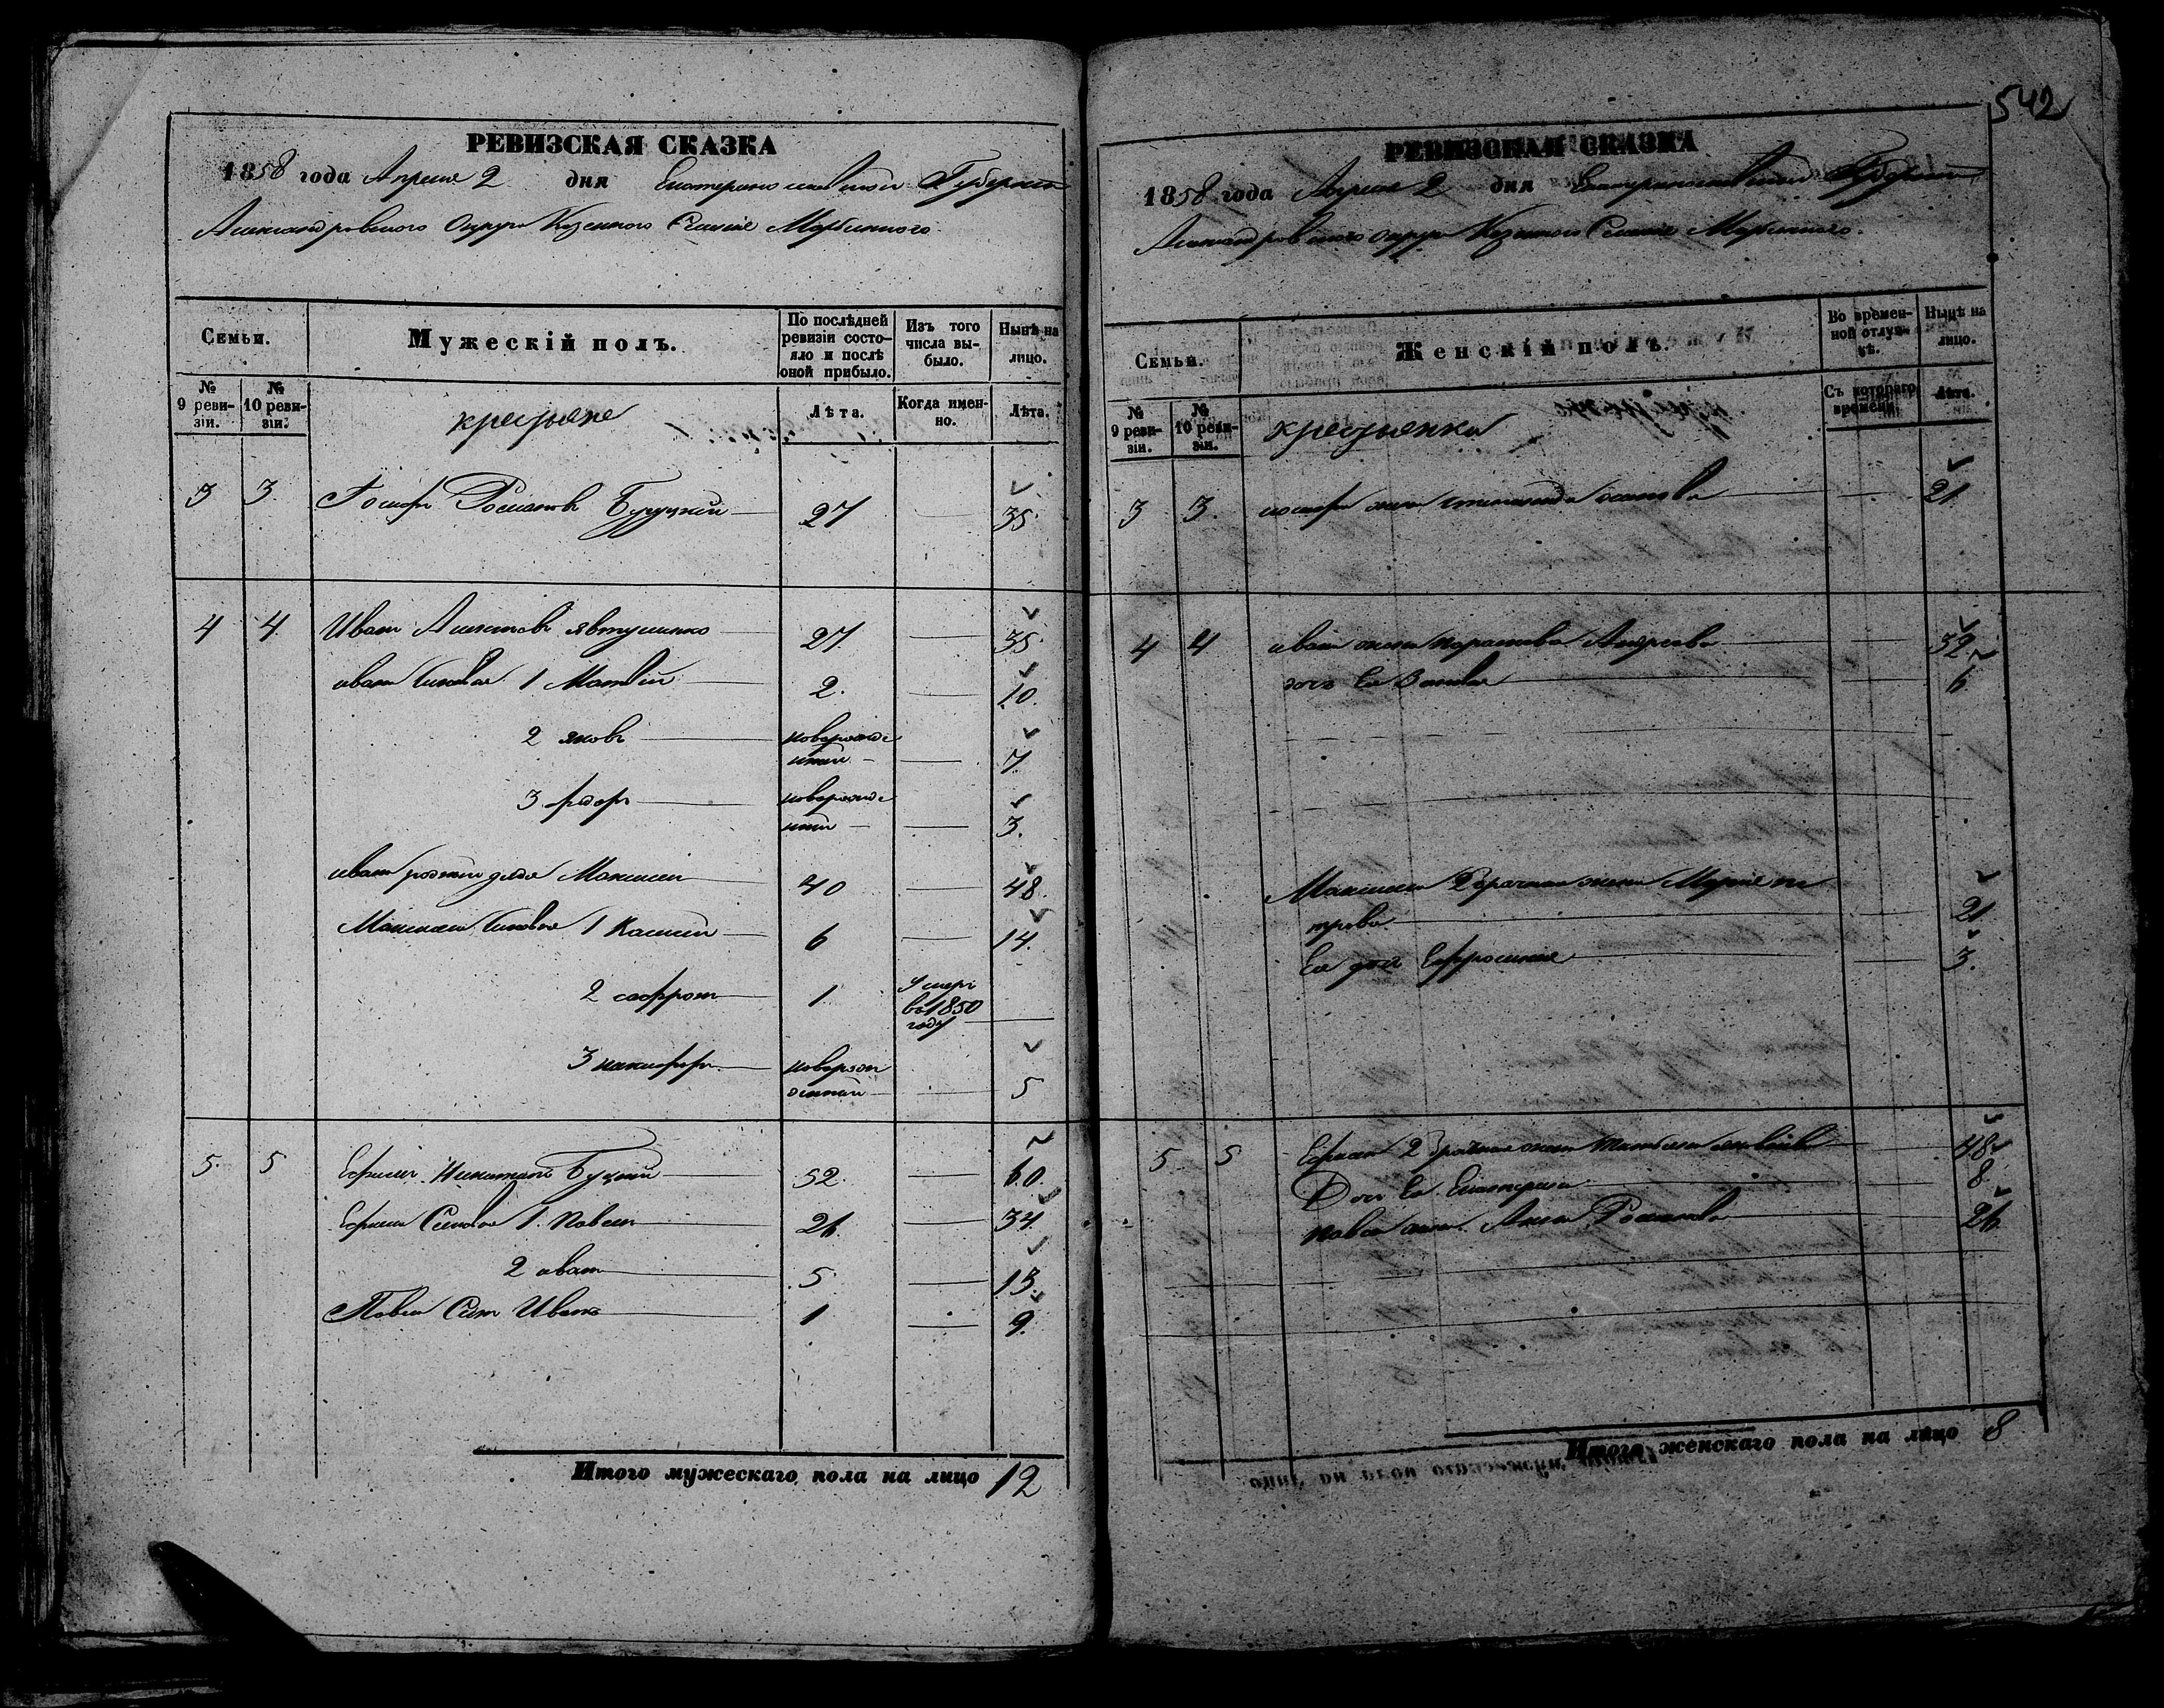 РЕВИЗСКАЯ СКАЗКА
1858 года Апреля 2 дня Екатеринославской Губернии
Александровского Округа Казенного Селения Марьинного
Семьи.
Мужескій полъ.
По послѣдней ревизіи состояло и послѣ оной прибыло.
Изъ того числа выбыло.
Нынѣ на лицо.
№ 9 ревизіи.
№ 10 ревизіи.
крестьяне
Лѣта.
Когда именно.
Лѣта.
3 3 Иосифъ Романовъ 27 35
4 4 Иванъ явтушенко 27 35
ивана сыновья 1 Матвей 2 10
2 яковъ новорожденный 7
3 федоръ новорожденный 3
ивана родной дядя Максимъ 40 48
Максима сыновья 1 6 14
2 софронъ 1 Умеръ въ 1850 году
3 никифоръ новорожденный 5
5 5 Ефимъ Буцкий 52 60
Ефима Сыновья 1 Павелъ 26 34
2 иванъ 5 13
Павла Сынъ Иванъ 1 9
Итого мужескаго пола на лицо 12
542
РЕВИЗСКАЯ СКАЗКА
1858 года Апреля 2 дня Екатеринославской Губернии
Александровского округа Казенного Селения Марьинного.
Семьи.
Женскій полъ.
Во временной отлучкѣ.
Нынѣ на лицо.
№ 9 ревизіи.
№ 10 ревизіи.
крестьянки
Съ котораго времени.
Лѣта.
3 3 иосифа жена 21
4 4 ивана жена параскева Андреева 32
дочь Ее 6
Максима 2 брачная жена Мария пе
трова 21
Ее дочь Ефросиния 3
5 5 Ефима 2 брачная жена 48
Дочь Ее Екатерина 8
павла жена Анна Романова 26
Итого женскаго пола на лицо 8